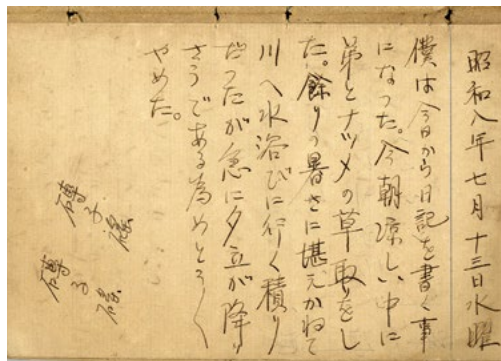 昭和八年七月十三日水曜
僕は今日から日記を書く事
になつた。今朝涼しい中に
弟とナツメの草取をし
た。餘りの暑さに堪えかねて
川へ水浴びに行く積り
だつたが急に夕立が降り
さうである為めとうく
やめた。